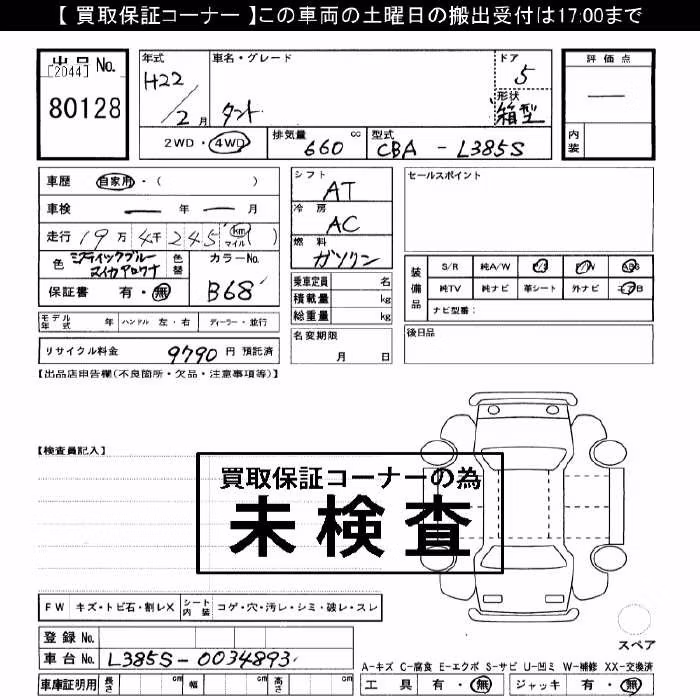 【 買取保証コーナー 】この車両の土曜日の搬出受付は17:00まで
出品 No.
[2044]
80128
年式 車名・グレード ドア 評価点
H22 5 —
/2月 タント 形状 箱型
2WD・4WD 排気量 660 cc 型式 CBA - L385S 内装
車歴 自家用・( )
車検 — 年 — 月
走行 19万 4千 245 km マイル ( )
色 ミスティックブルーマイカアロワナ 色替 カラーNo.
保証書 有・無 B68
シフト AT
冷房 AC
燃料 ガソリン
乗車定員 名
積載量 kg
総重量 kg
セールスポイント
装備品 S/R 純A/W P/S P/W ABS
純TV 純ナビ 革シート 外ナビ エアB
ナビ型番:
モデル年式 年 ハンドル 左・右 ディーラー・並行
名変期限
月 日
後日品
リサイクル料金 9790 円 預託済
【出品店申告欄(不良箇所・欠品・注意事項等)】
【検査員記入】
買取保証コーナーの為
未検査
FW キズ・トビ石・割レX シート内装 コゲ・穴・汚レ・シミ・破レ・スレ
登録 No.
車台 No. L385S-0034893
スペア
A-キズ C-腐食 E-エクボ S-サビ U-凹ミ W-補修 XX-交換済
車庫証明用 長さ cm 幅 cm 高さ cm 工具 有・無 ジャッキ 有・無